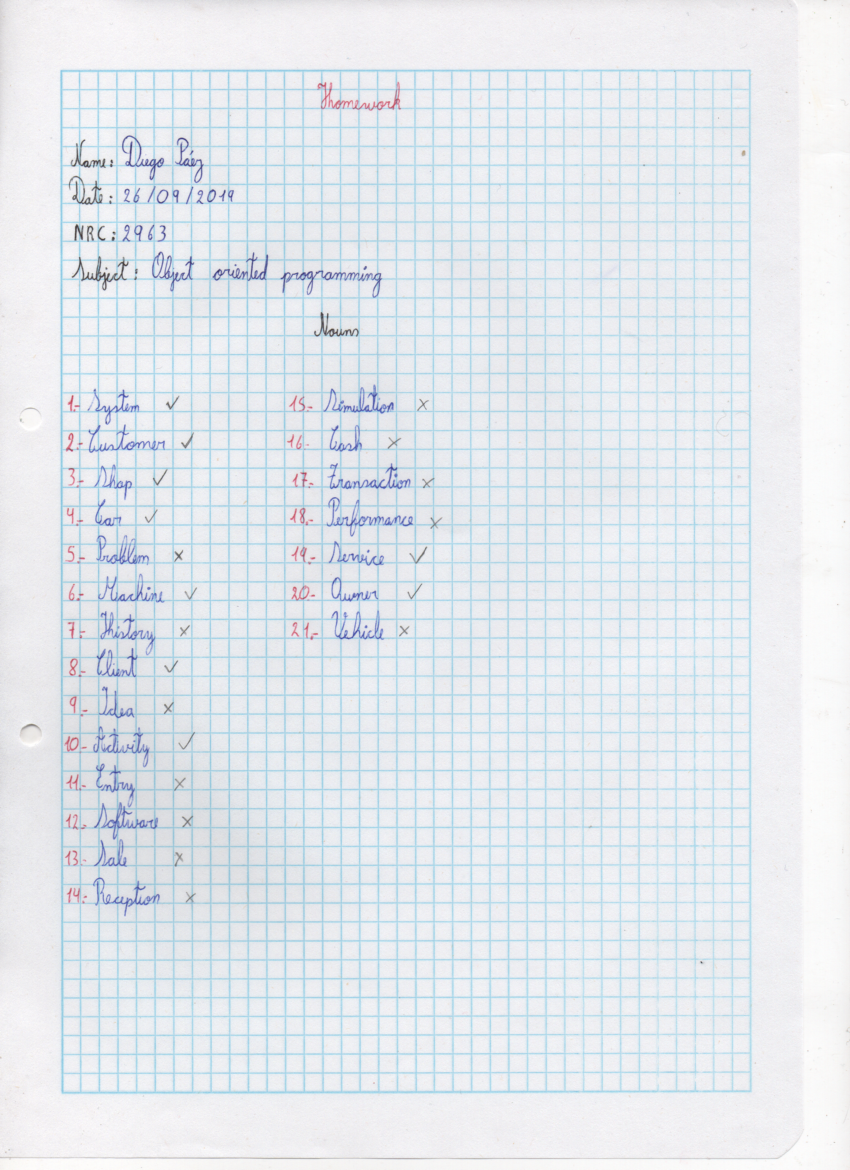 Homework
Name: Diego Páez
Date: 26/09/2019
NRC: 2963
Subject: Object oriented programming
Nouns
1.- System ✓
2.- Customer ✓
3.- Shop ✓
4.- Car ✓
5.- Problem x
6.- Machine ✓
7.- History x
8.- Client ✓
9.- Idea x
10.- Activity ✓
11.- Entry x
12.- Software x
13.- Sale x
14.- Reception x
15.- Simulation x
16.- Cash x
17.- Transaction x
18.- Performance x
19.- Service ✓
20.- Owner ✓
21.- Vehicle x